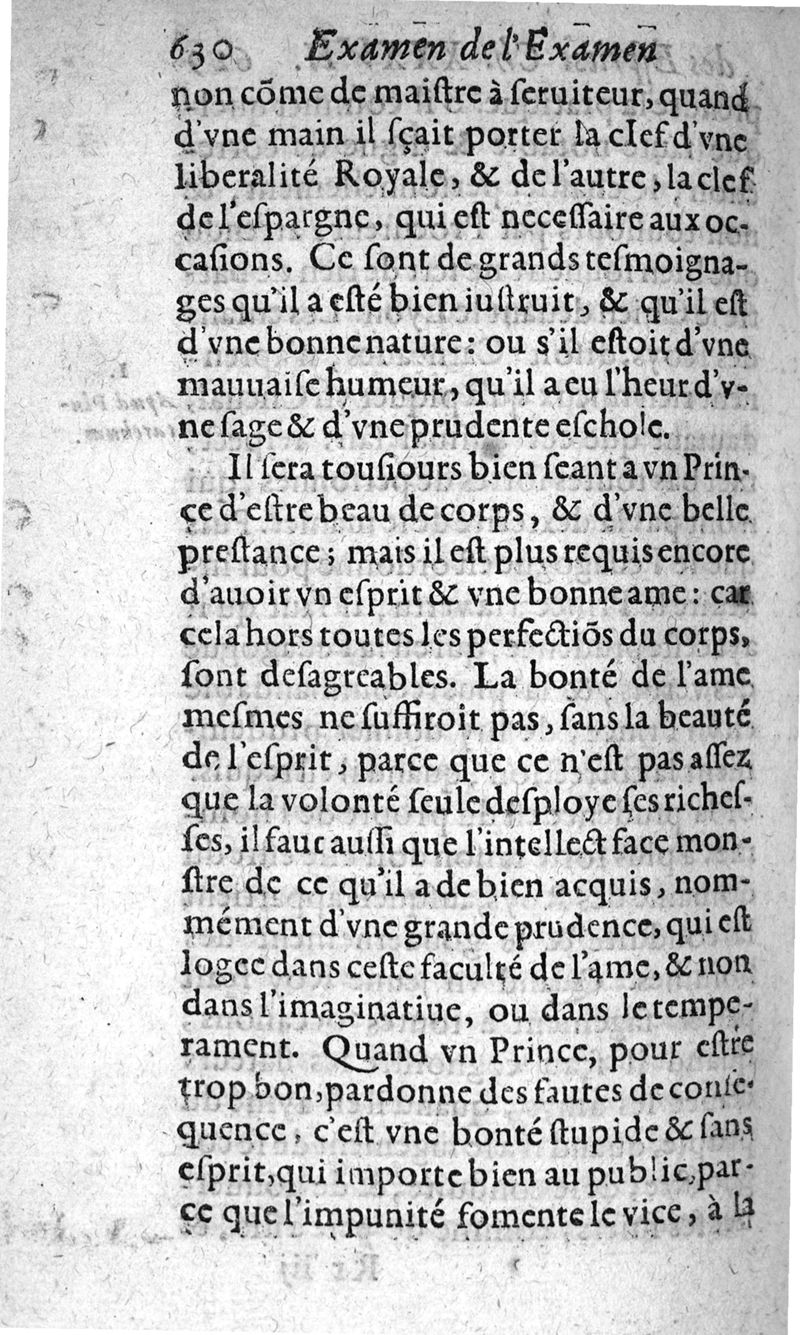 630 Examẽn de l'Exãmeñ
non cõme de maiſtre à ſeruiteur, quand
d'vne main il ſçait porter la clef d'vne
liberalité Royale, & de l'autre, la clef
de l'eſpargne, qui eſt neceſſaire aux oc-
caſions. Ce ſont de grands teſmoigna-
ges qu'il a eſté bien iuſtruit, & qu'il eſt
d'vne bonne nature: ou s'il eſtoit d'vne
mauuaiſe humeur, qu'il a eu l'heur d'v-
ne ſage & d'vne prudente eſchole.
Il ſera touſiours bien ſeant a vn Prin-
ce d'eſtre beau de corps, & d'vne belle
preſtance; mais il eſt plus requis encore
d'auoir vn eſprit & vne bonne ame: car
cela hors toutes les perfectiõs du corps,
ſont deſagreables. La bonté de l'ame
meſmes ne ſuffiroit pas, ſans la beauté
de l'eſprit, parce que ce n'eſt pas aſſez
que la volonté ſeule deſploye ſes richeſ-
ſes, il faut auſſi que l'intellect face mon-
ſtre de ce qu'il a de bien acquis, nom-
mément d'vne grande prudence, qui eſt
logee dans ceſte faculté de l'ame, & non
dans l'imaginatiue, ou dans le tempe-
rament. Quand vn Prince, pour eſtre
trop bon, pardonne des fautes de conſe-
quence, c'eſt vne bonté ſtupide & ſans
eſprit, qui importe bien au public, par-
ce que l'impunité fomente le vice, à la